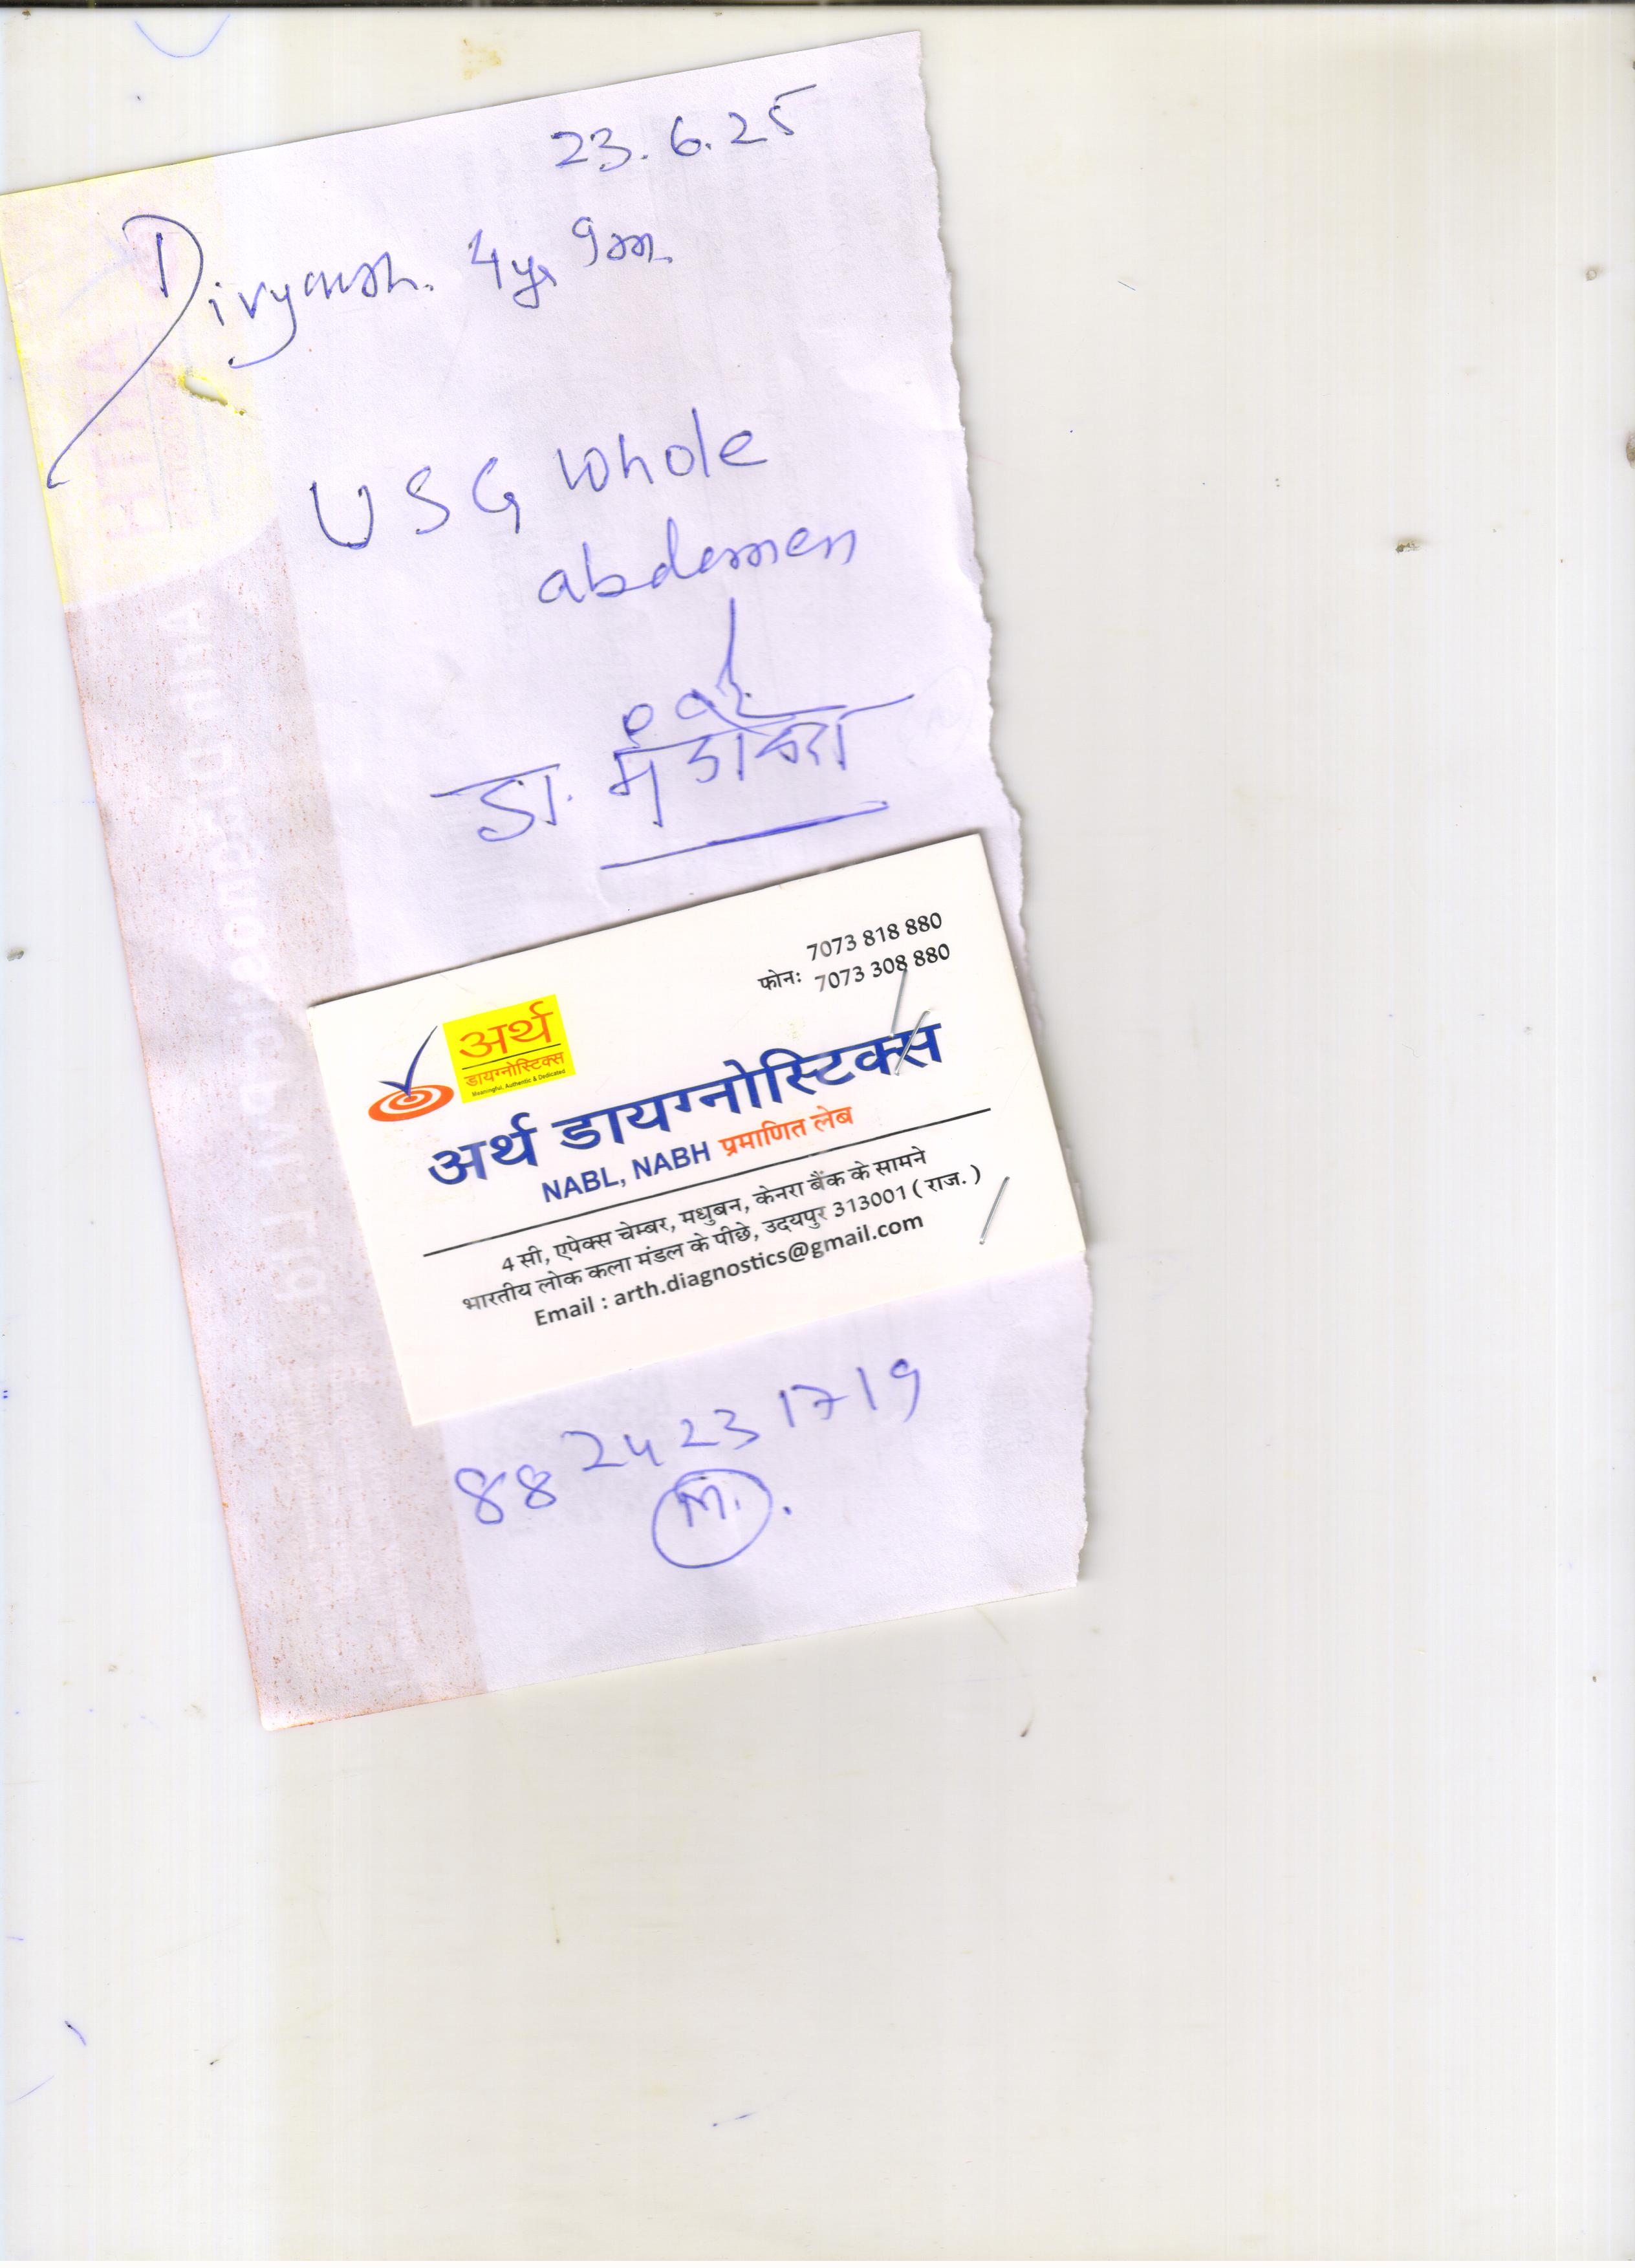 23.6.25
Divyansh. 4yr 9m.
USG whole
abdomen
डा.
7073 818 880
फोनः 7073 308 880
अर्थ
डायग्नोस्टिक्स
Meaningful, Authentic & Dedicated
अर्थ डायग्नोस्टिक्स
NABL, NABH प्रमाणित लेब
4 सी, एपेक्स चेम्बर, मधुबन, केनरा बैंक के सामने
भारतीय लोक कला मंडल के पीछे, उदयपुर 313001 ( राज. )
Email : arth.diagnostics@gmail.com
88 24 23 1719
M.